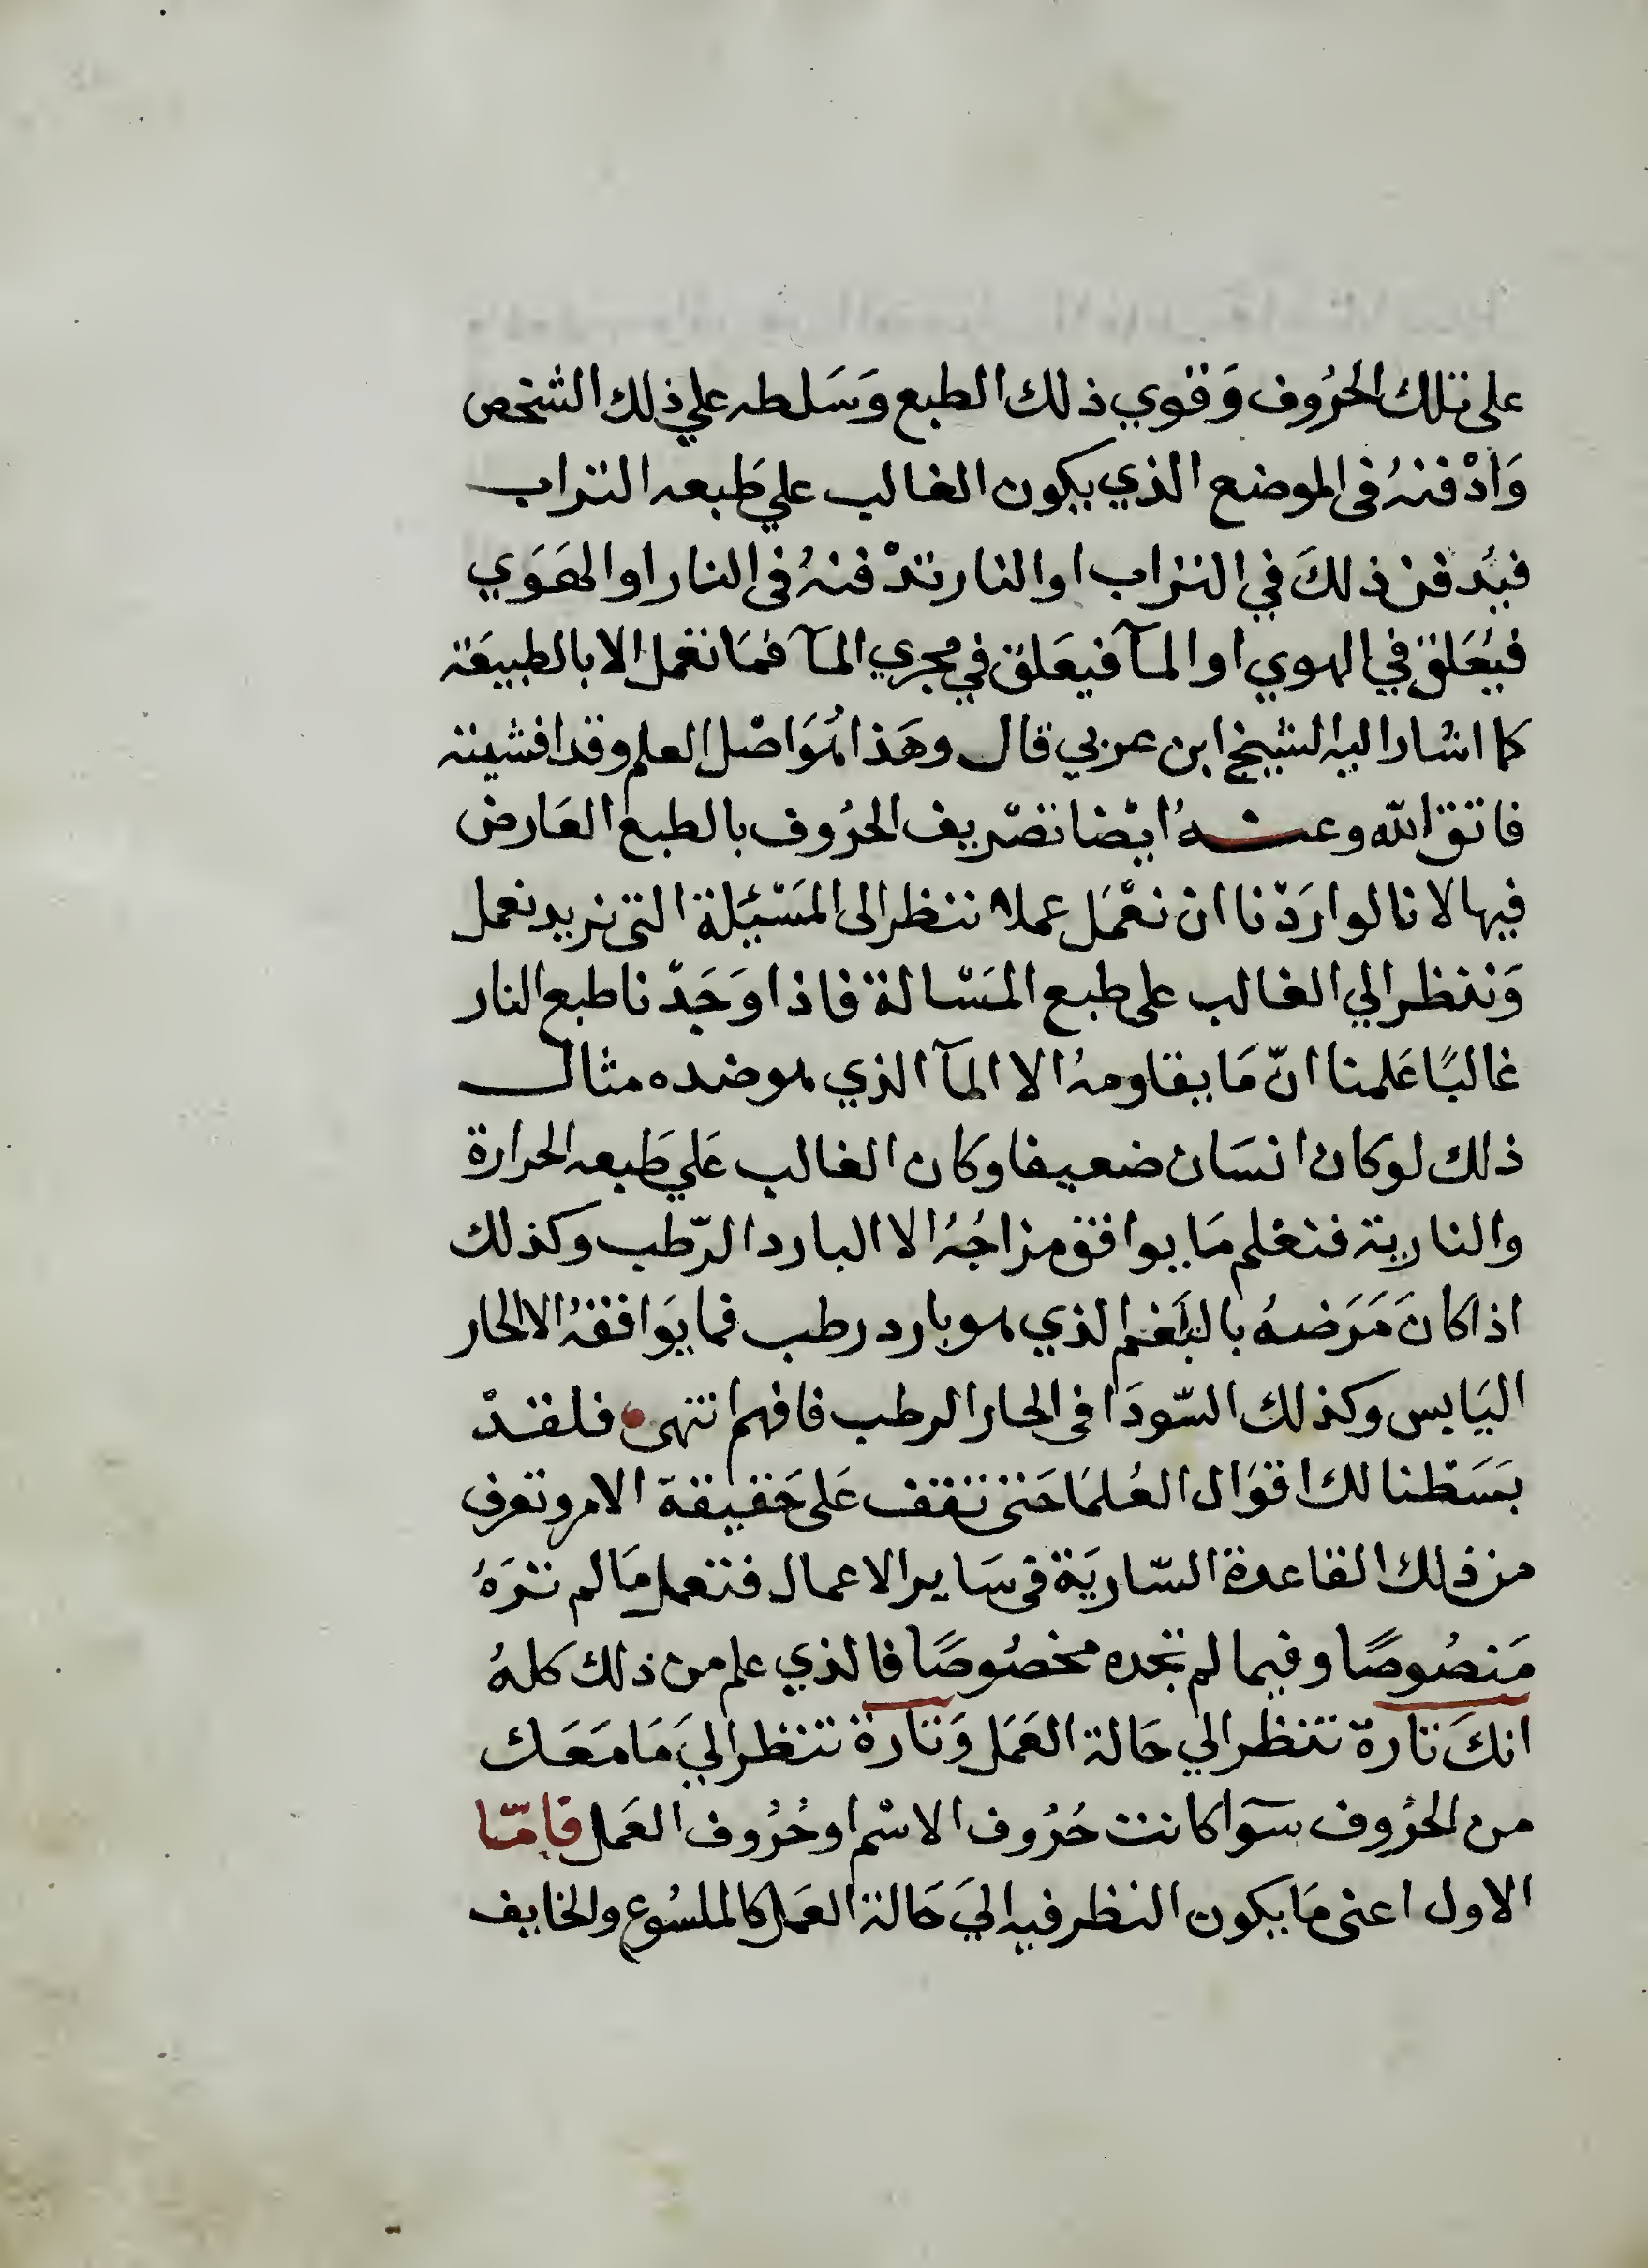 على تلك الحرُوف وَقوي ذلك الطبع وَسَلطه علي ذلك الشخص
وَادْفنهُ فى الموضع الذي يكون الغالب علي طَبعه التراب
فيُدفن ذلكَ في التراب او النار تدْفنهُ فى النار او الهَوَي
فيُعَلق في الهوي او المآ فيعَلق في مجري المآ فمَا تعمل الا بالطبيعَة
كما اشار اليه الشيخ ابن عربي قال وهَذا هُوَ اصْل العلم وقد افشيته
فاتق الله وعنهُ ايْضا تصْريف الحرُوف بالطبع العَارض
فيها لانا لو ارَدْنا ان نعْمَل عملا ننظر الى المَسْئلة التى نريد نعمل
وَننظر الي الغالب على طبع المَسْالة فاذا وَجَدْنا طبع النار
غالبًا عَلمنا انّ مَا يقاومهُ الا المآ الذي هو ضده مثال
ذلك لو كان انسَان ضعيفا وكان الغالب عَلي طَبعه الحرارة
والنارية فنعْلم مَا يوافق مزاجُهُ الا البارد الرّطب وكذلك
اذا كانَ مَرَضهُ بالبَلغم الذي هو بارد رطب فما يوَافقهُ الا الحار
اليَابس وكذلك السّودَا فى الحار الرطب فافهم انتهى فلقدْ
بسَطنا لك اقوَال العُلمَا حَتى تقف عَلى حَقيقة الامر وتعرف
من ذلك القاعدة السّاريَة فى سَاير الاعمال فتعمل مَا لم ترَهُ
مَنصُوصًا وفيما لم تجده مخصُوصًا فالذي علم من ذلك كلهُ
انكَ تارة تنظر الي حَالة العَمَل وَتارة تنظر اليَ مَا مَعَك
من الحُروف سوآ كانت حُرُوف الاسْم او حُرُوف العَمل فامّا
الاول اعنى مَا يكون النظر فيه اليَ حَالة العَمل كالملسُوع والخايف